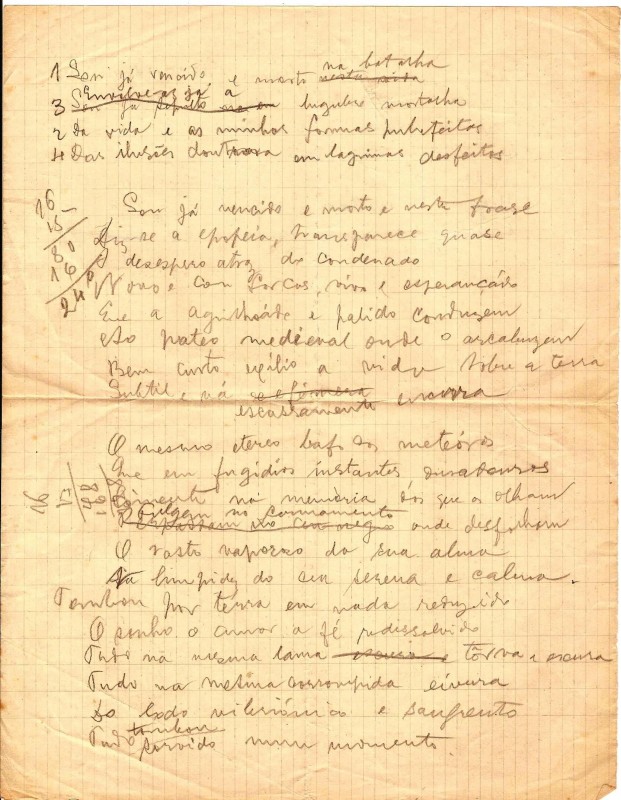 na batalha
1 Sou já vencido, e morto nesta vida
Envolve-as já a
3 Sou já sepulto lugubre mortalha
2 Da vida e as minhas formas putrefeitas
4 Das ilusões doutrora em lagrimas desfeitas
16
15
80
16
240
Sou já vencido e morto e nesta frase
Diz-se a epopeia, transparece quase
O desespero atroz do condenado
Novo e com forças, vivo e esperançado
Que a agrilhoado e palido conduzem
Ao pateo medieval onde o
Bem curto exilio a vida sobre a terra
Subtil e vá e efémera encerra
escassamente
O mesmo etereo bafo dos meteóros
Que em fugidios instantes
Sómente na memória dos que os olham
no firmamento
Perpassam no ceu negro onde desfolham
O vasto vaporoso da sua alma
Na limpidez do seu serena e calma.
16
Tombou por terra em nada reduzido
O sonho o amor a fé
Tudo na mesma lama escura e tôrva e escura
Tudo na mesma corrompida
Do lodo e sangrento
tombou
Tudo sorvido num momento.